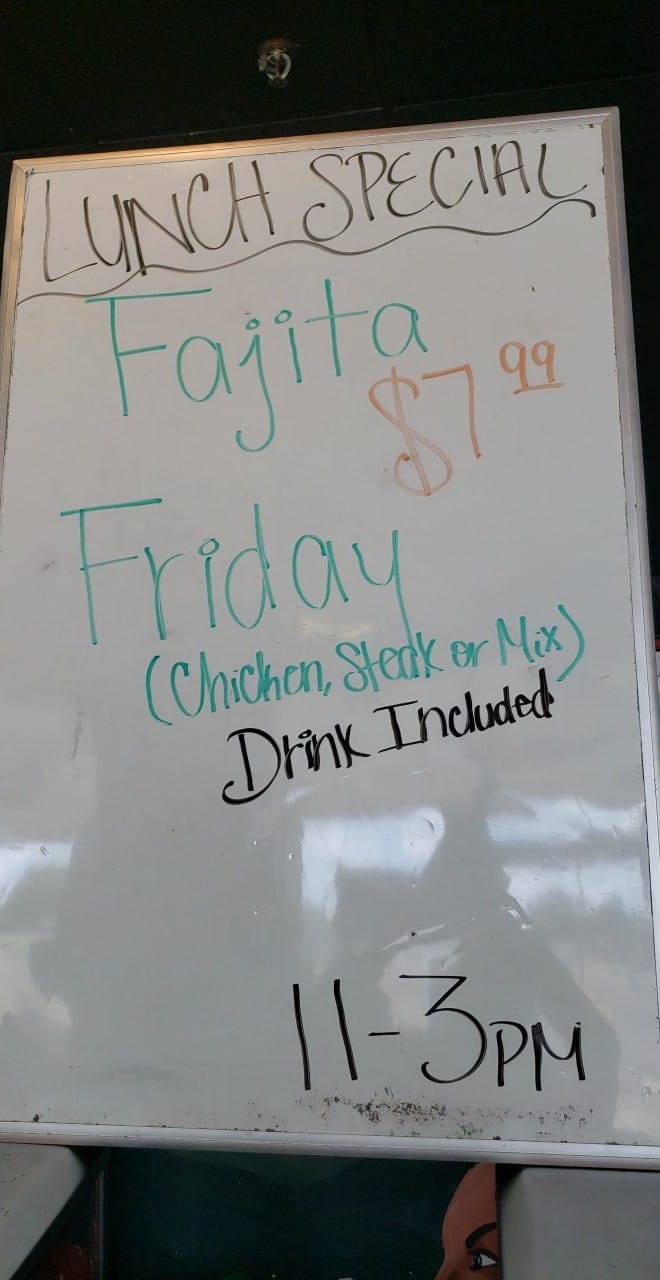 LUNCH SPECIAL
Fajita
$7.99
Friday
(Chicken, Steak or Mix)
Drink Included
11-3PM